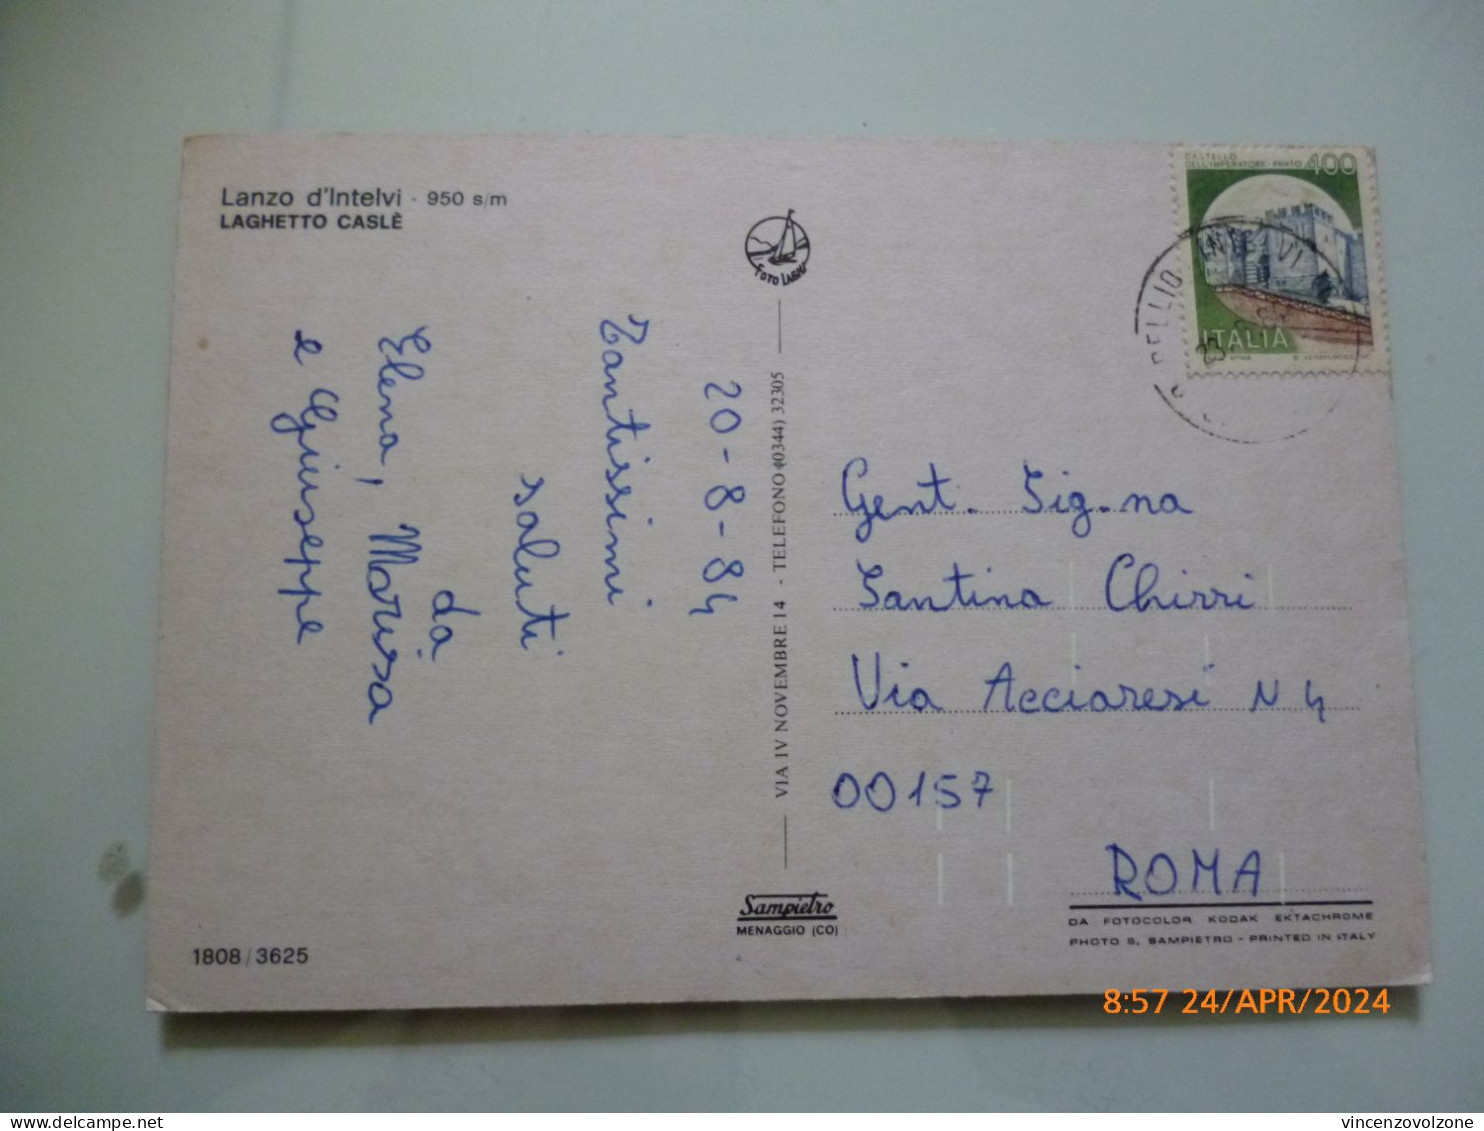 Lanzo d'Intelvi - 950 s/m
LAGHETTO CASLÈ
FOTO LAGHI
CASTELLO
DELL'IMPERATORE - PRATO 400
ITALIA
PELLIO INTELVI
20-8-84
Tantissimi
saluti
da
Elena, Marusa
e Giuseppe
VIA IV NOVEMBRE 14 - TELEFONO (0344) 32305
Gent. Sig.na
Santina Chirri
Via Acciaresi N 4
00157
ROMA
Sampietro
MENAGGIO (CO)
DA FOTOCOLOR KODAK EKTACHROME
PHOTO S. SAMPIETRO - PRINTED IN ITALY
1808/3625
8:57 24/APR/2024
delcampe.net
vincenzovolzone